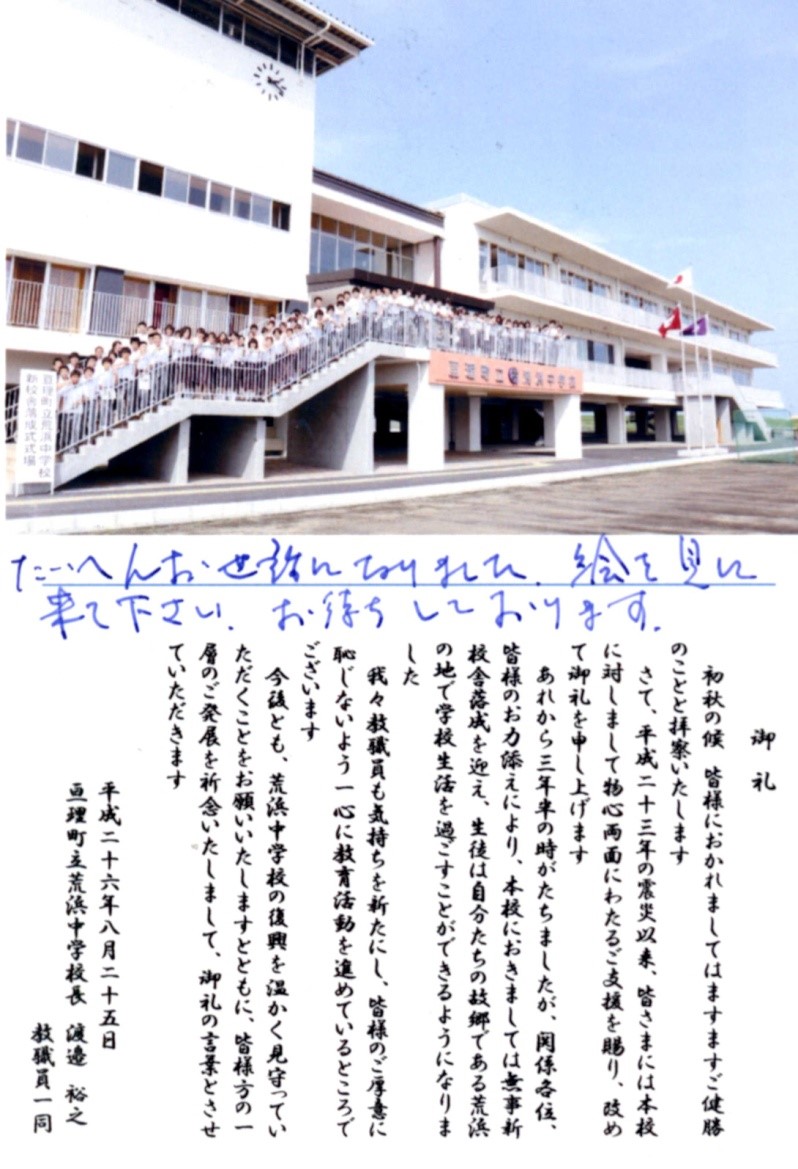 亘理町立荒浜中学校
亘理町立荒浜中学校
新校舎落成式式場
たいへんお世話になりました。絵を見に
来て下さい。お待ちしております。
御礼
初秋の候 皆様におかれましてはますますご健勝
のことと拝察いたします
さて、平成二十三年の震災以来、皆さまには本校
に対しまして物心両面にわたるご支援を賜り、改め
て御礼を申し上げます
あれから三年半の時がたちましたが、関係各位、
皆様のお力添えにより、本校におきましては無事新
校舎落成を迎え、生徒は自分たちの故郷である荒浜
の地で学校生活を過ごすことができるようになりま
した
我々教職員も気持ちを新たにし、皆様のご厚意に
恥じないよう一心に教育活動を進めているところで
ございます
今後とも、荒浜中学校の復興を温かく見守ってい
ただくことをお願いいたしますとともに、皆様方の一
層のご発展を祈念いたしまして、御礼の言葉とさせ
ていただきます
平成二十六年八月二十五日
亘理町立荒浜中学校長 渡邉 裕之
教職員一同